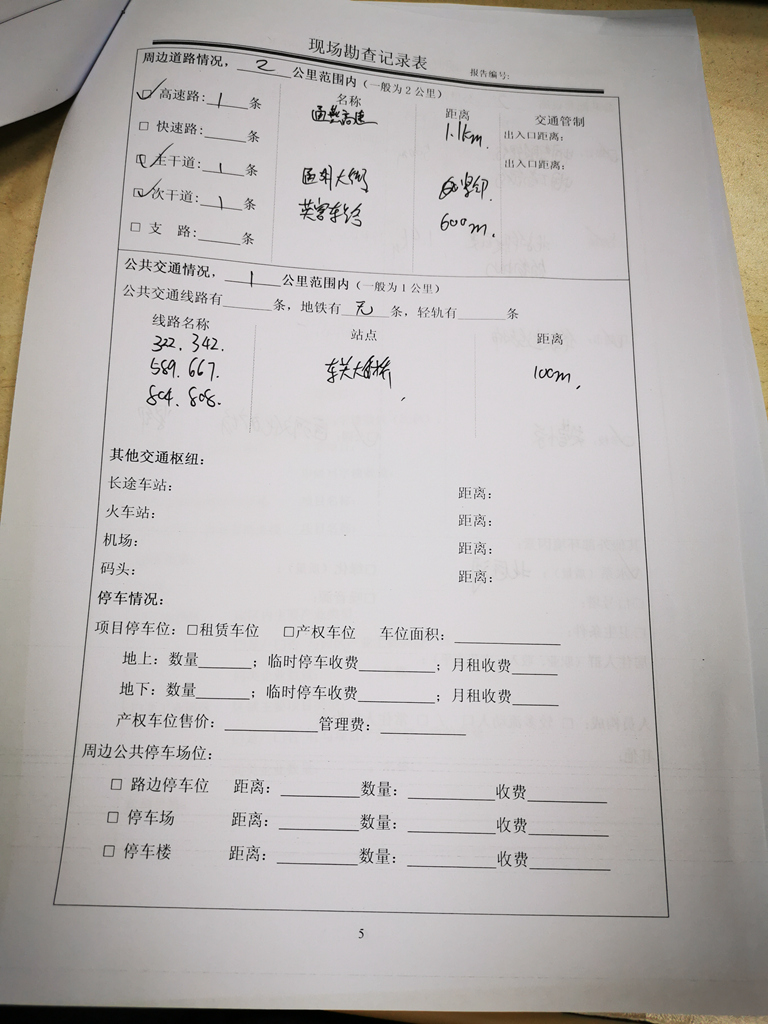 现场勘查记录表
报告编号:
周边道路情况，2公里范围内（一般为2公里）
☑ 高速路: 1 条 名称 通燕高速 距离 1.1km. 交通管制
□ 快速路:____条 出入口距离:
☑ 主干道: 1 条 通胡大街 出入口距离:
☑ 次干道: 1 条 600m.
□ 支 路:____条
公共交通情况，1公里范围内（一般为1公里）
公共交通线路有______条，地铁有 无 条，轻轨有______条
线路名称 站点 距离
322. 342.
589. 667. 100m.
804. 808.
其他交通枢纽:
长途车站: 距离:
火车站: 距离:
机场: 距离:
码头: 距离:
停车情况:
项目停车位: □租赁车位 □产权车位 车位面积:____________
地上: 数量______; 临时停车收费_________; 月租收费_____
地下: 数量______; 临时停车收费_________; 月租收费_____
产权车位售价: __________管理费: _________
周边公共停车场位:
□ 路边停车位 距离: _________数量: _________收费_________
□ 停车场 距离: _________数量: _________收费_________
□ 停车楼 距离: _________数量: _________收费_________
5